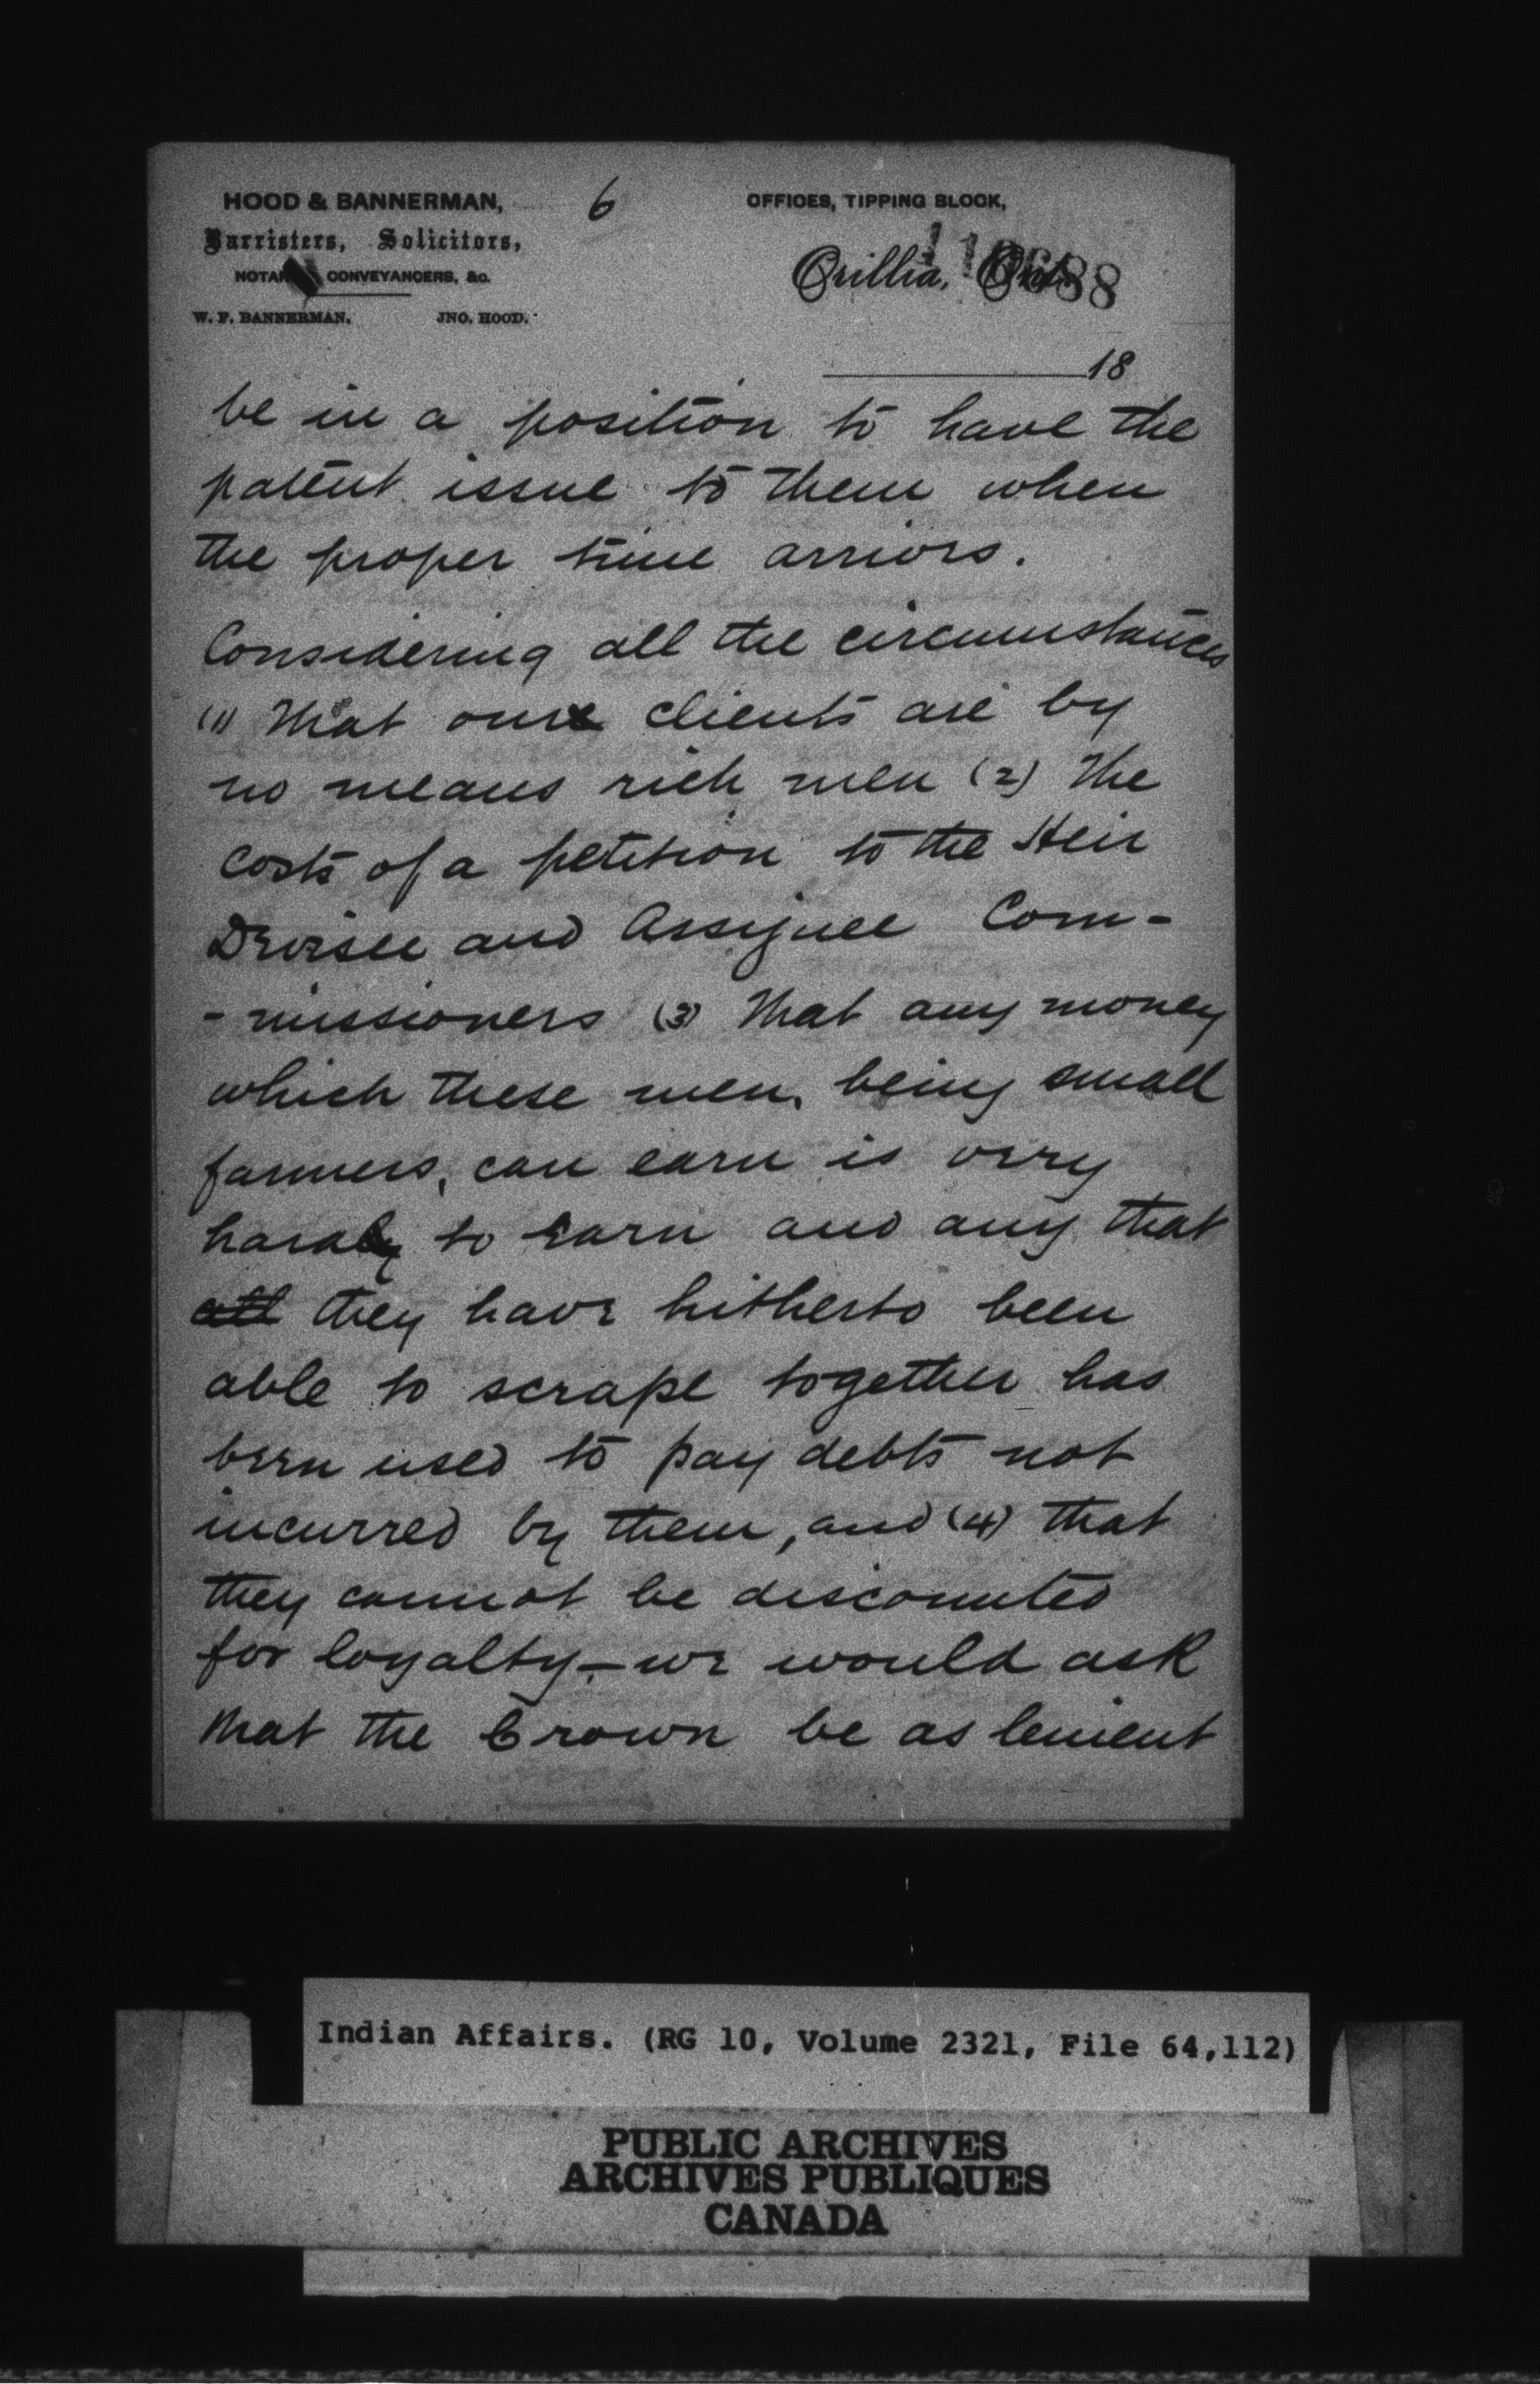 HOOD & BANNERMAN,
Barristers, Solicitors,
CONVEYANCERS, &c.
W. F. BANNERMAN. JNO. HOOD.
6
OFFICES, TIPPING BLOCK,
Orillia, Ont.
18
be in a position to have the
patent issue to them when
the proper time arrives.
Considering all the circumstances
(1) That our clients are by
no means rich men (2) The
costs of a petition to the Heir
Devisee and Assignee Com-
-missioners (3) That any money
which these men, being small
farmers, can earn is very
hard to earn and any that
all they have hitherto been
able to scrape together has
been used to pay debts not
incurred by them, and (4) that
they cannot be discounted
for loyalty - we would ask
that the Crown be as lenient
Indian Affairs. (RG 10, Volume 2321, File 64,112)
PUBLIC ARCHIVES
ARCHIVES PUBLIQUES
CANADA